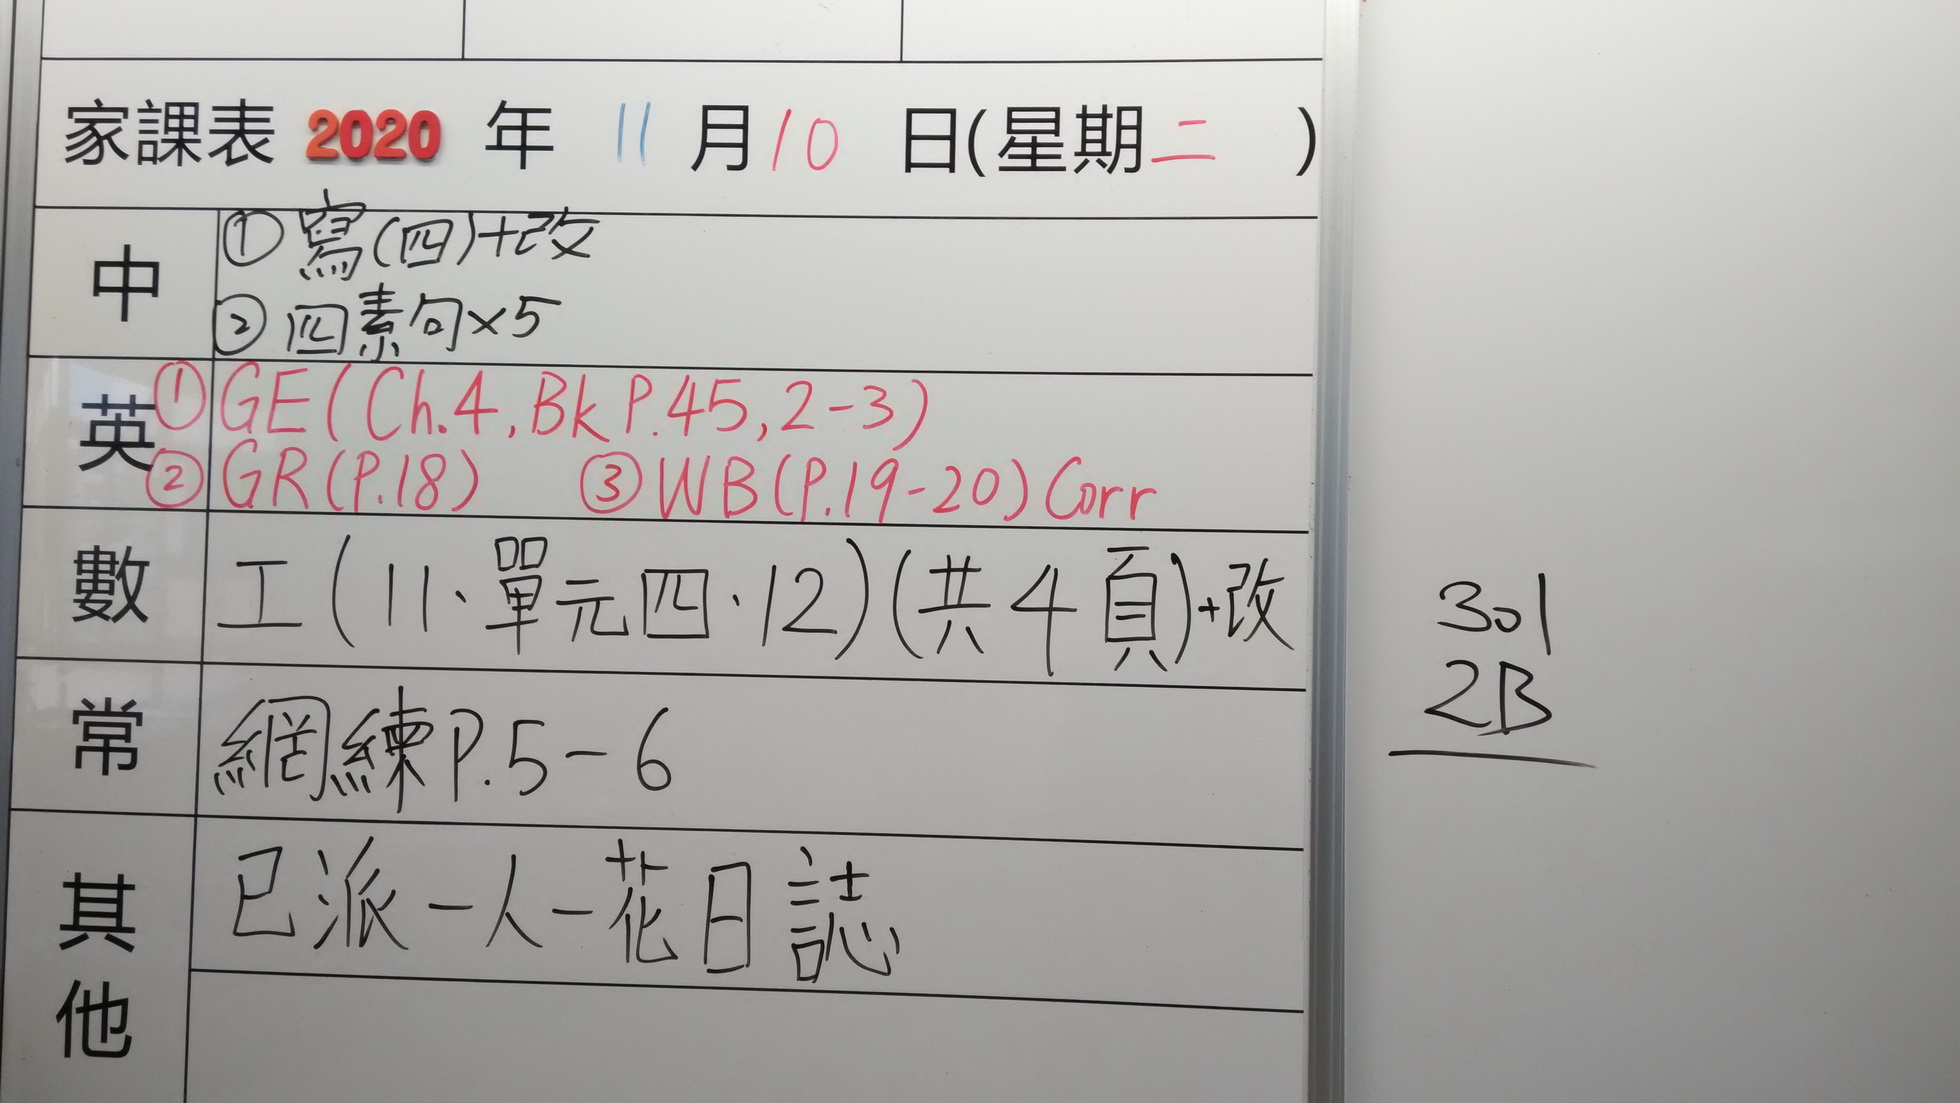 家課表 2020 年 11 月 10 日(星期二 )
中
① 寫(四)+改
② 四素句×5
英
① GE(Ch.4, Bk P.45, 2-3)
② GR(P.18) ③ WB(P.19-20) Corr
數
工(11、單元四、12)(共4頁)+改
常
網練P.5-6
其他
已派一人一花日誌
301
2B